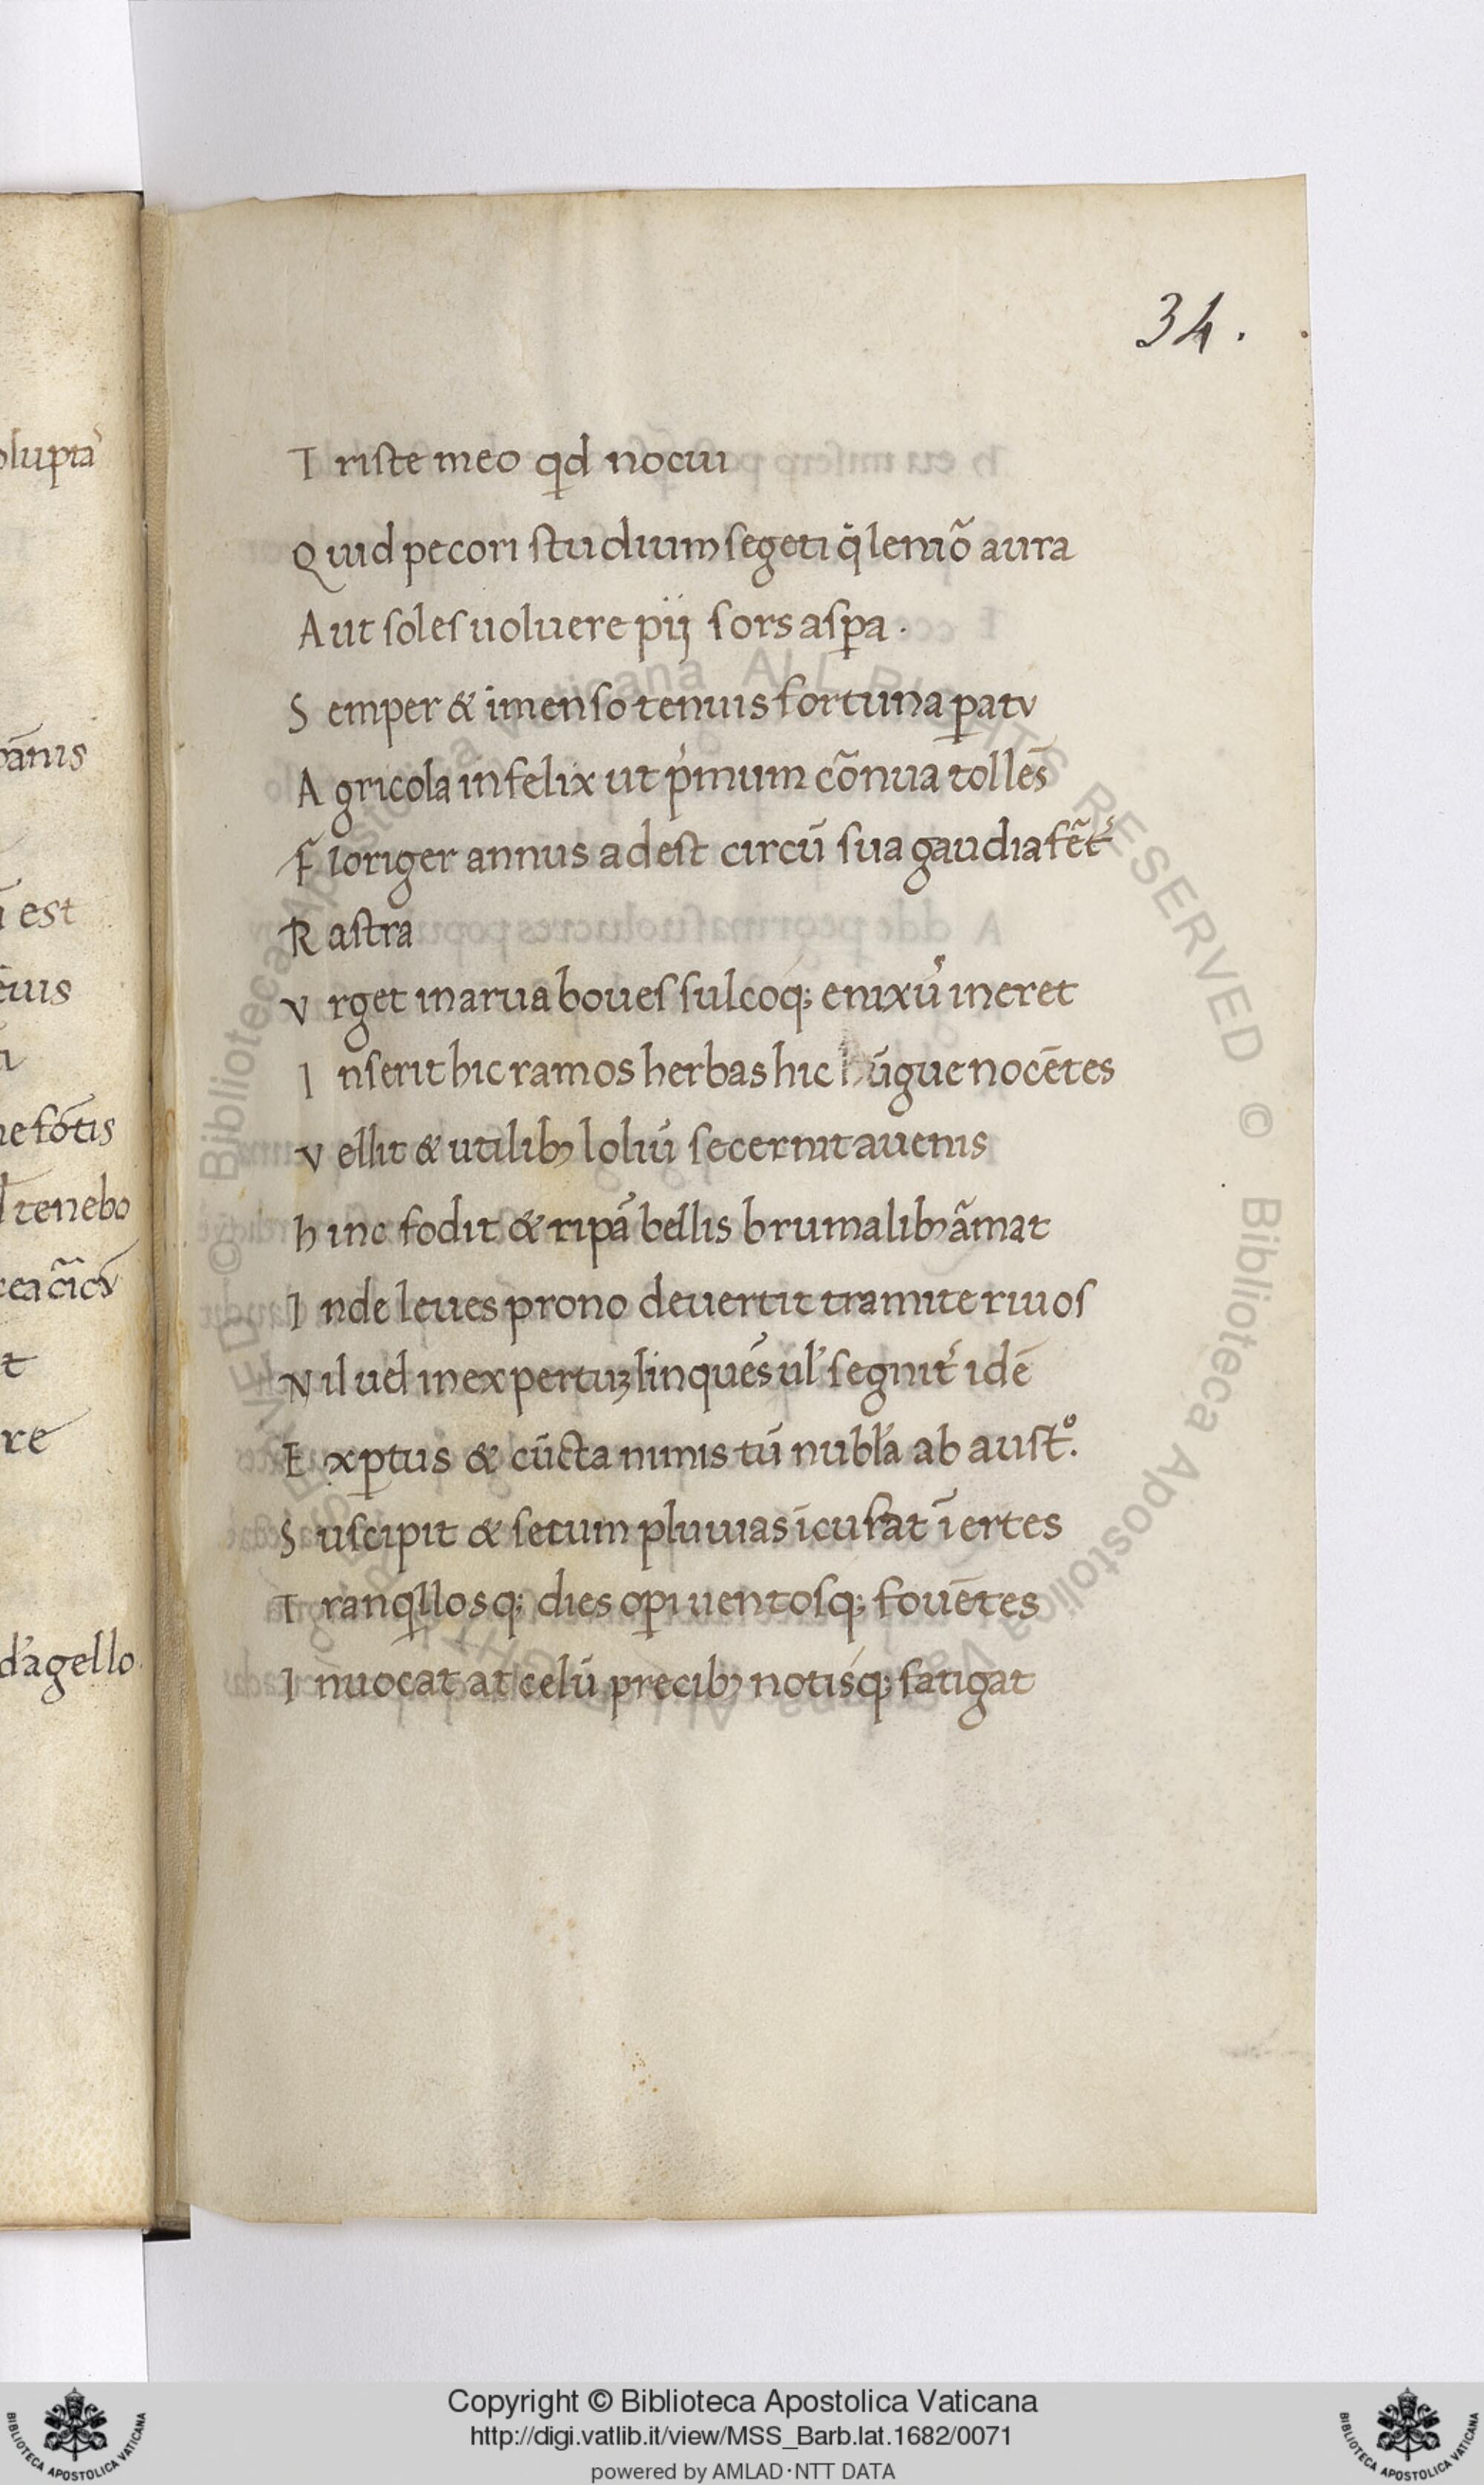 oluptã
pãnis
est
eius
ne fõtis
tenebo
t
re
d'agello.
34.
T riste meo qd nocui
Q uid pecori studium segeti q̃ leniõ aura
A ut soles uoluere pij sors aspa .
S emper & imenso tenuis fortuna patv
A gricola infelix ut p̓mum cõnua tollẽs
F loriger annus adest circũ sua gaudia fẽt̃
R astra
V rget in arua boues sulcoq; enixũ ineret
I nserit hic ramos herbas hic ũgue nocẽtes
V ellit & utilibꝫ loliũ secernit auenis
h inc fodit & ripã bellis brumalibꝫ ãmat
I nde leues prono deuertit tramite riuos
N il uel inexpertuꝫ linquẽs ul' segnit̃ idẽ
E xptus & cũcta nimis tũ nubl'a ab aust°.
S uscipit & secum pluuias icusat ĩertes
T ranqllosq; dies opi uentosq; fouẽtes
I nuocat at celũ precibꝫ notisq; fatigat
Copyright © Biblioteca Apostolica Vaticana
http://digi.vatlib.it/view/MSS_Barb.lat.1682/0071
powered by AMLAD·NTT DATA